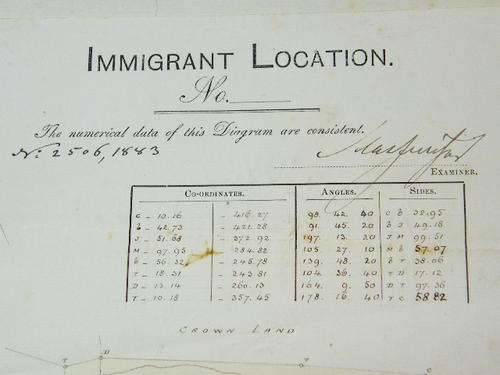 IMMIGRANT LOCATION.
No.
The numerical data of this Diagram are consistent.
No. 2506, 1883
EXAMINER.
CO-ORDINATES. ANGLES. SIDES.
C - 10.16 - 416.27 98. 42. 40 C B 32.95
B - 42.73 - 421.28 91. 45. 20 B J 49.18
J - 51.58 - 372.92 197. 13. 20 J M 99.51
M - 97.95 - 284.82 105. 27. 10 M 57.07
- 56.32 - 245.78 139. 48. 20 T 38.06
T - 18.31 - 243.81 104. 36. 40 T D 17.12
D - 13.14 - 260.13 164. 9. 50 D T 97.36
T - 10.18 - 357.45 178. 16. 40 T C 58.82
CROWN LAND
T D T C